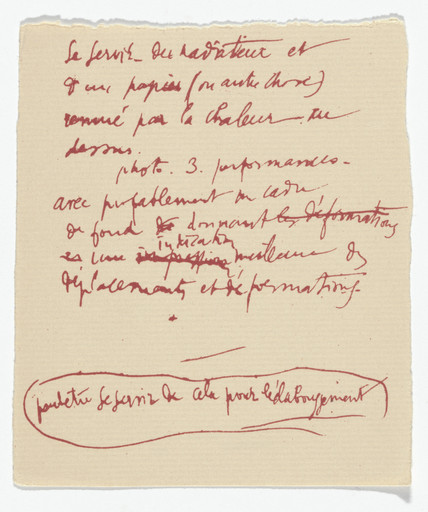 Se servir du radiateur et
d'un papier (ou autre chose)
remué par la chaleur au
dessus.
photo. 3. performances -
avec probablement un cadre
de fond donnant les déformations
indication
une meilleure des
déplacements et déformations.
peut être se servir de cela pour